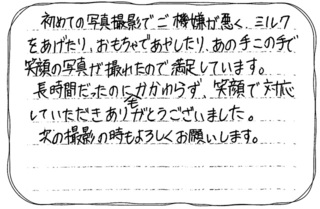 初めての写真撮影でご機嫌が悪く、ミルク
をあげたり、おもちゃであやしたり、あの手この手で
笑顔の写真が撮れたので満足しています。
長時間だったのにもかかわらず、笑顔で対応
していただきありがとうございました。
次の撮影の時もよろしくお願いします。